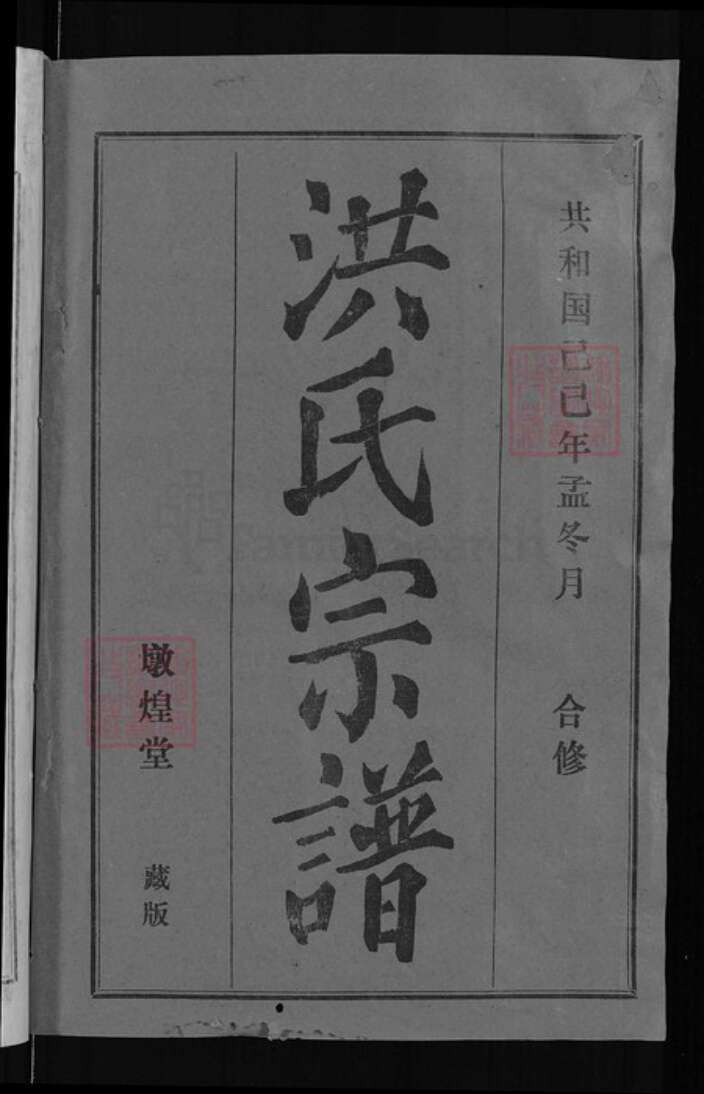 共和国己巳年孟冬月 合修
洪氏宗譜
墩煌堂 藏版